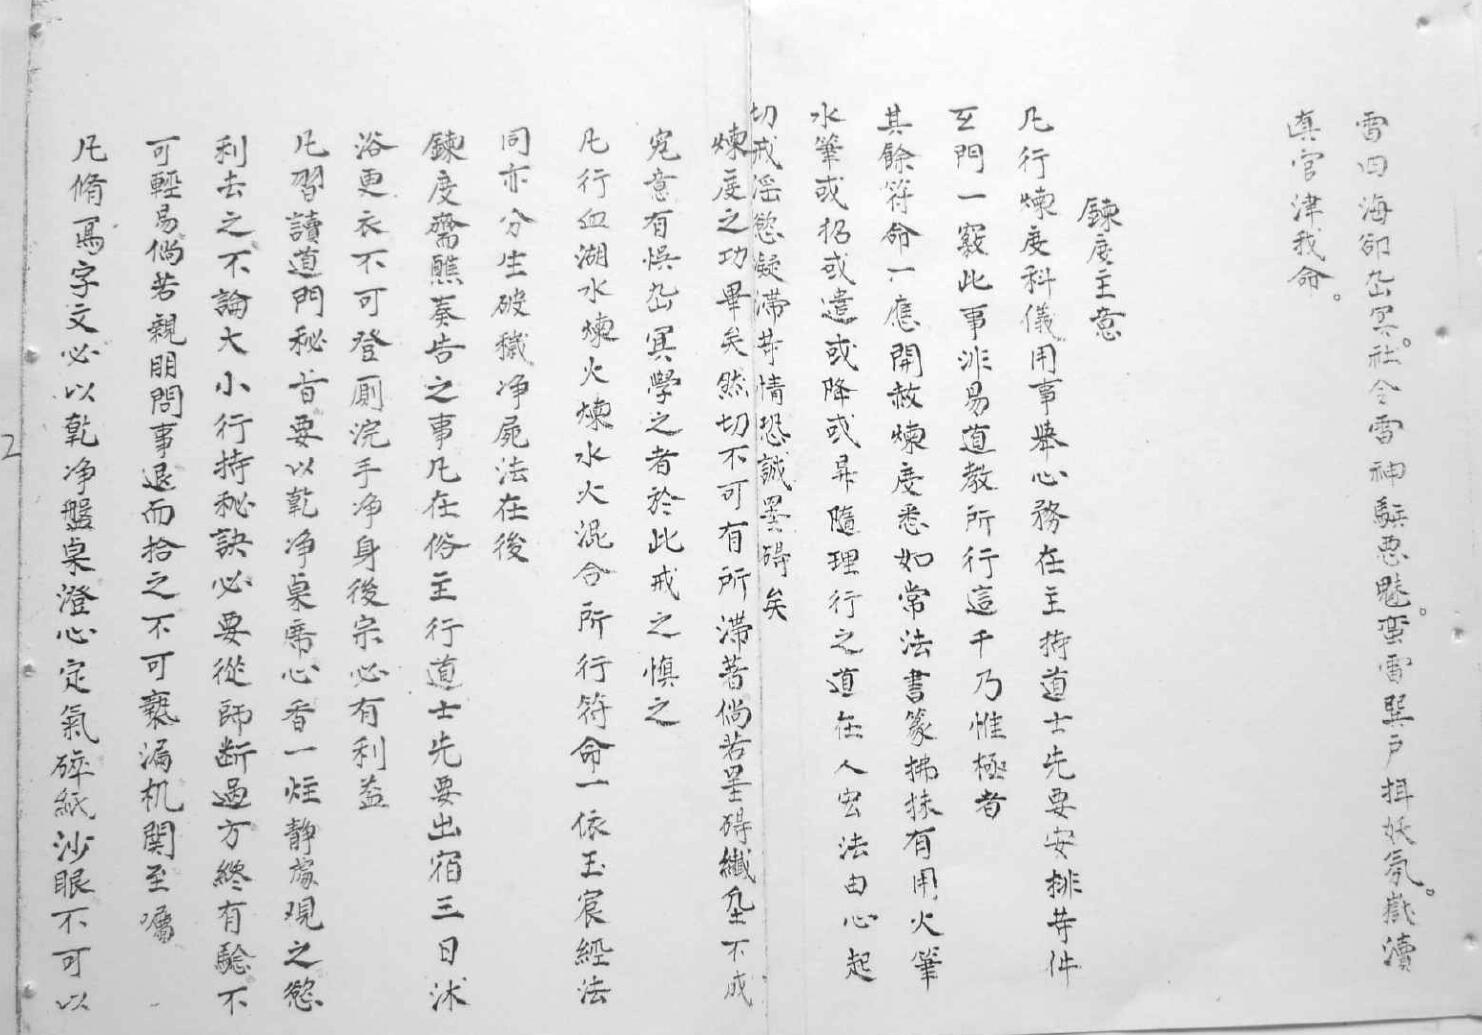 雷四海卻岊冥。社令雷神驅惡魅。蛮雷巽户挕妖氛。嶽瀆
真官津我命。
鍊度主意
凢行煉度科儀用事舉心務在主持道士先要安排䒭件
玄門一竅此事非易道教所行這千乃惟極者
其餘符命一應開赦煉度悉如常法書篆拂抹有用火筆
水筆或招或遣或降或昇隨理行之道在人宏法由心起
切戒淫慾凝滯䒭情恐誠罣碍矣
煉度之功畢矣然切不可有所滯著倘若罣碍纖塵不成
究意有悮岊冥學之者於此戒之慎之
凢行血湖水煉火煉水火混合所行符命一依玉宸經法
同亦分生破穢净屍法在後
鍊度齋醮奏告之事凢在俗主行道士先要出宿三日沐
浴更衣不可登厠浣手净身後宗必有利益
凢習讀道門秘旨要以乾净桌席心香一炷靜處現之慾
利去之不論大小行持秘訣必要從師断過方終有驗不
可輕易倘若親朋問事退而拾之不可褻漏机関至囑
凢脩寫字文必以乾净盤桌澄心定氣碎紙沙眼不可以
2